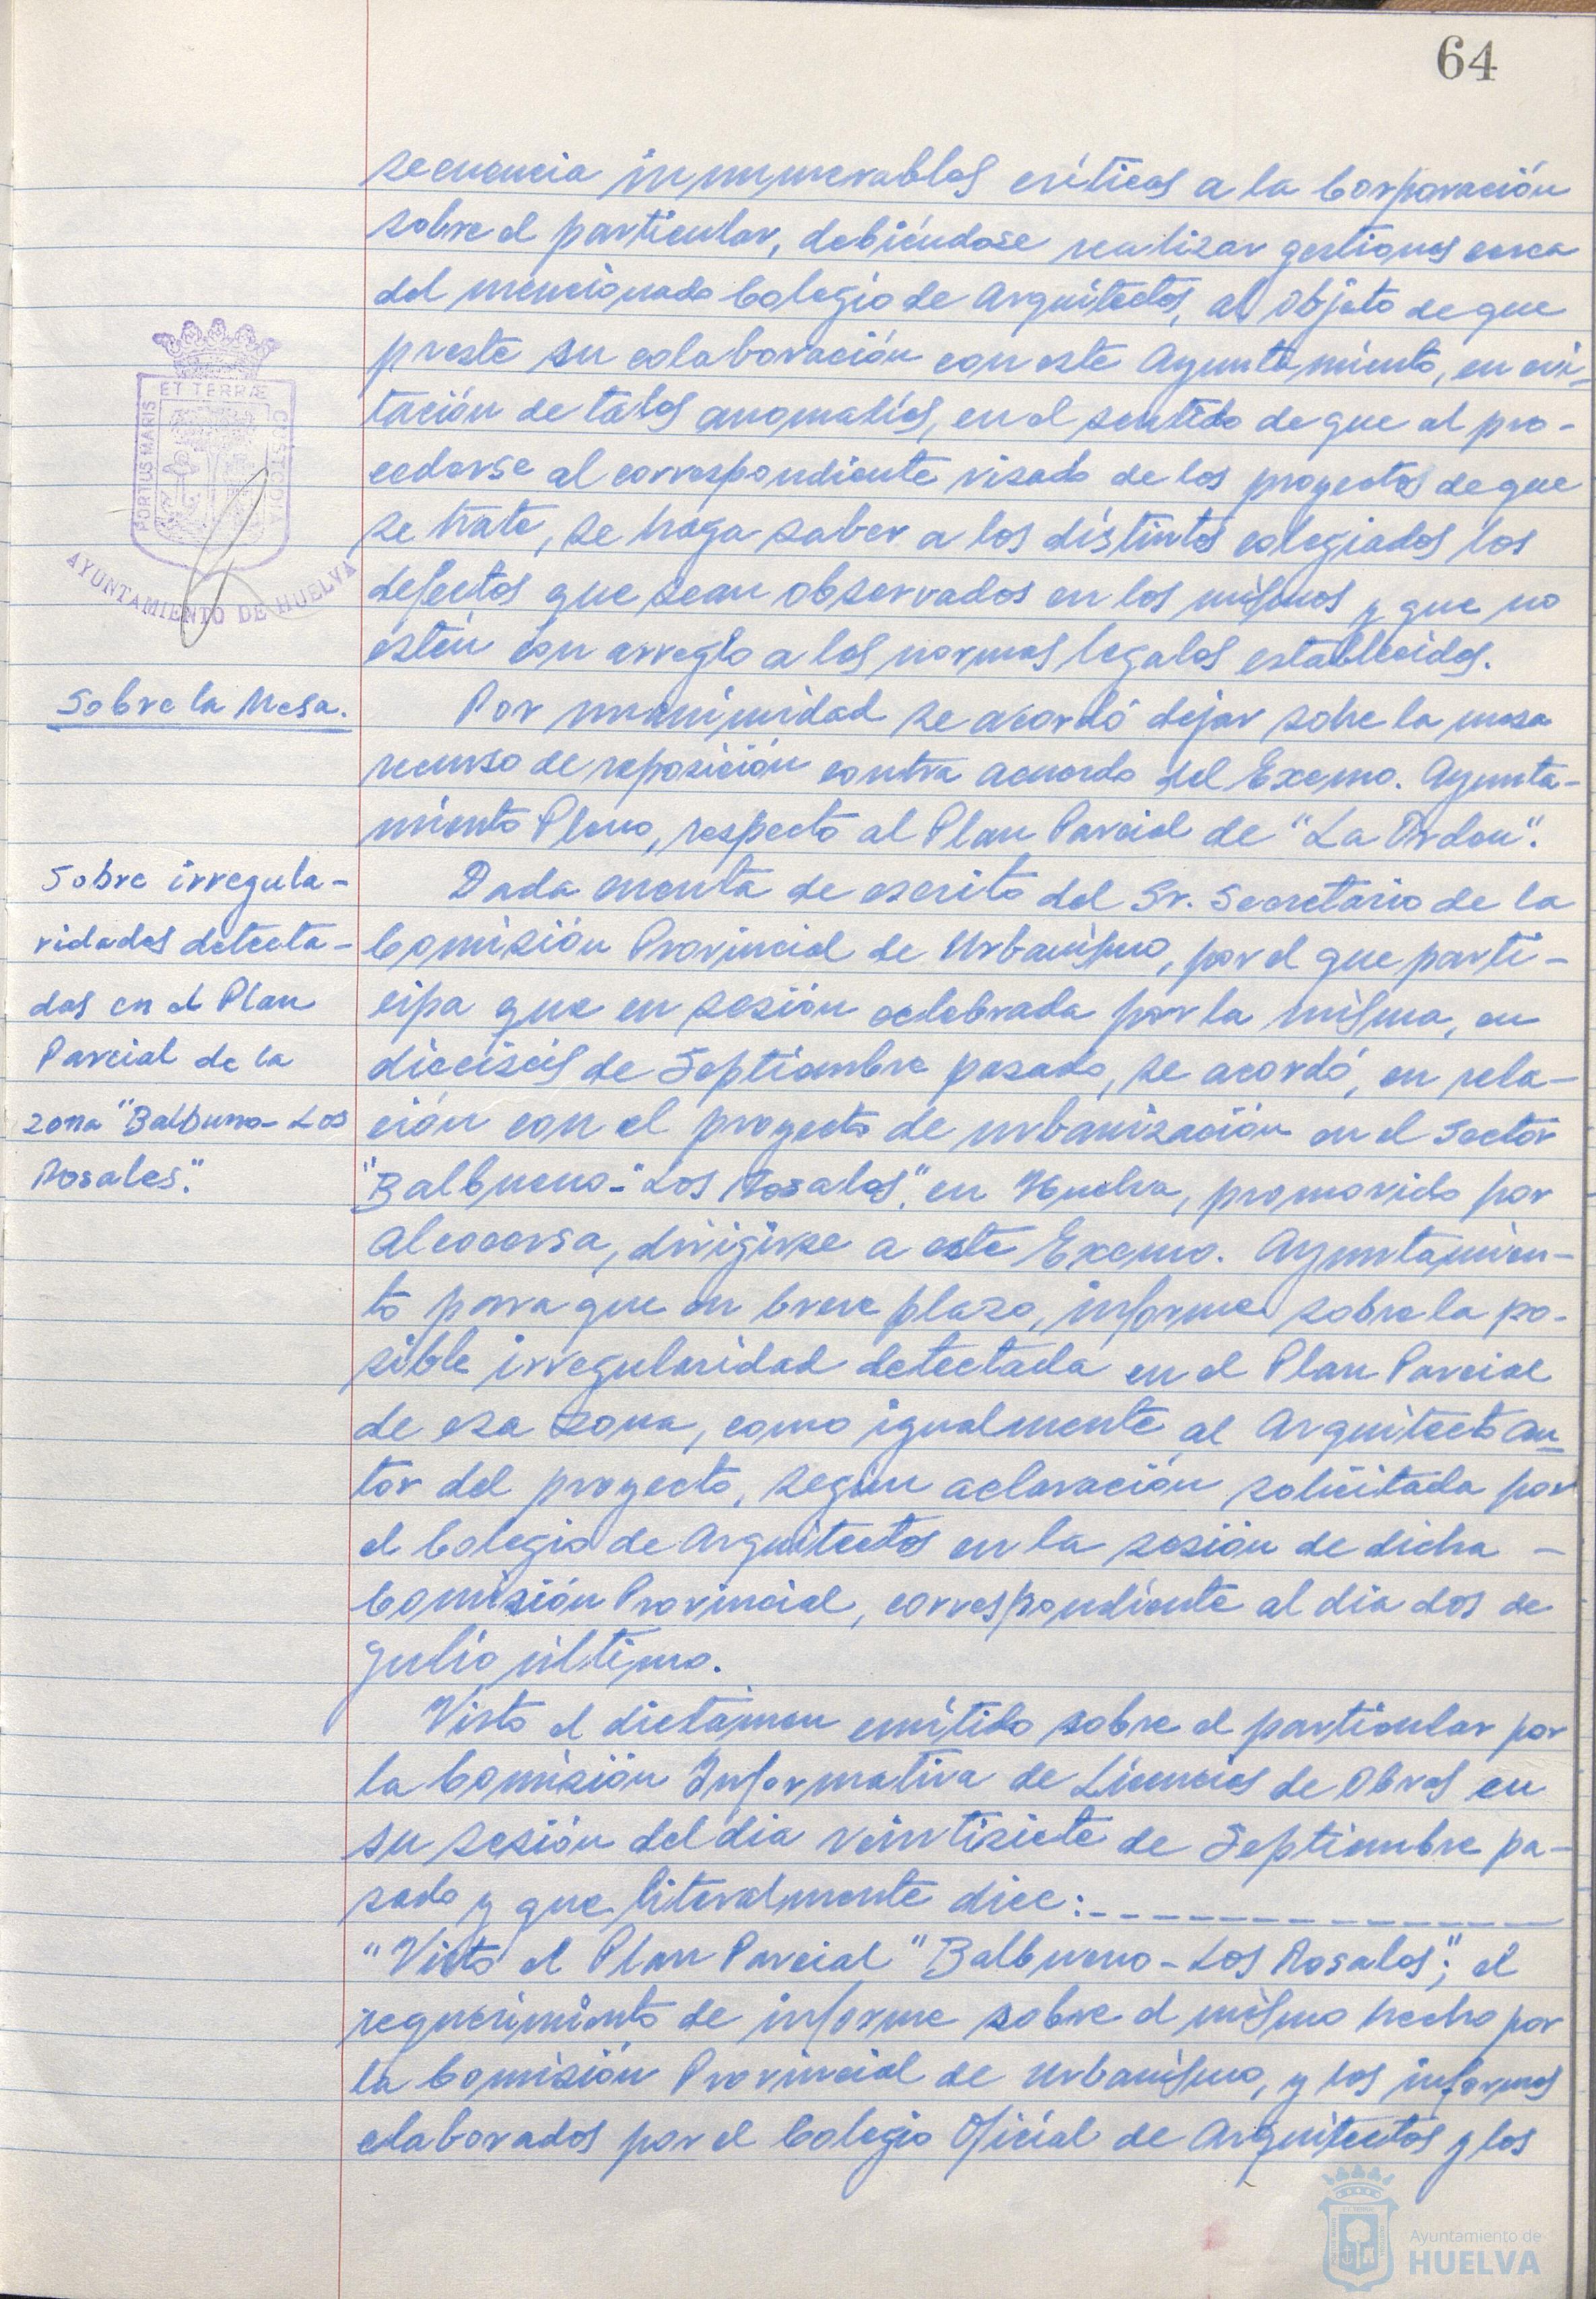 64
secuencia innumerables críticas a la Corporación
sobre el particular, debiéndose realizar gestiones cerca
del mencionado Colegio de Arquitectos, al objeto de que
preste su colaboración con este Ayuntamiento, en evi-
tación de tales anomalías, en el sentido de que al pro-
cederse al correspondiente visado de los proyectos de que
se trate, se haga saber a los distintos colegiados los
defectos que sean observados en los mismos y que no
estén con arreglo a las normas legales establecidas.
ET TERRÆ
PORTUS MARIS
CUSTODIA
AYUNTAMIENTO DE HUELVA
Sobre la Mesa.
Por unanimidad se acordó dejar sobre la mesa
recurso de reposición contra acuerdo del Excmo. Ayunta-
miento Pleno, respecto al Plan Parcial de "La Orden".
Sobre irregula-
ridades detecta-
das en el Plan
Parcial de la
zona "Balbueno-Los
Rosales."
Dada cuenta de escrito del Sr. Secretario de la
Comisión Provincial de Urbanismo, por el que parti-
cipa que en sesión celebrada por la misma, en
dieciséis de Septiembre pasado, se acordó, en rela-
ción con el proyecto de urbanización en el Sector
"Balbueno-"Los Rosales", en Huelva, promovido por
Alcocersa, dirigirse a este Excmo. Ayuntamien-
to para que en breve plazo, informe sobre la po-
sible irregularidad detectada en el Plan Parcial
de esa zona, como igualmente al Arquitecto au-
tor del proyecto, según aclaración solicitada por
el Colegio de Arquitectos en la sesión de dicha -
Comisión Provincial, correspondiente al dia dos de
Julio último.
Visto el dictámen emitido sobre el particular por
la Comisión Informativa de Licencias de Obras en
su sesión del dia veintisiete de Septiembre pa-
sado y que literalmente dice:- - - - - - - - - - - -
"Visto el Plan Parcial "Balbueno-Los Rosales"; el
requerimiento de informe sobre el mismo hecho por
la Comisión Provincial de Urbanismo, y los informes
elaborados por el Colegio Oficial de Arquitectos y los
Ayuntamiento de
HUELVA